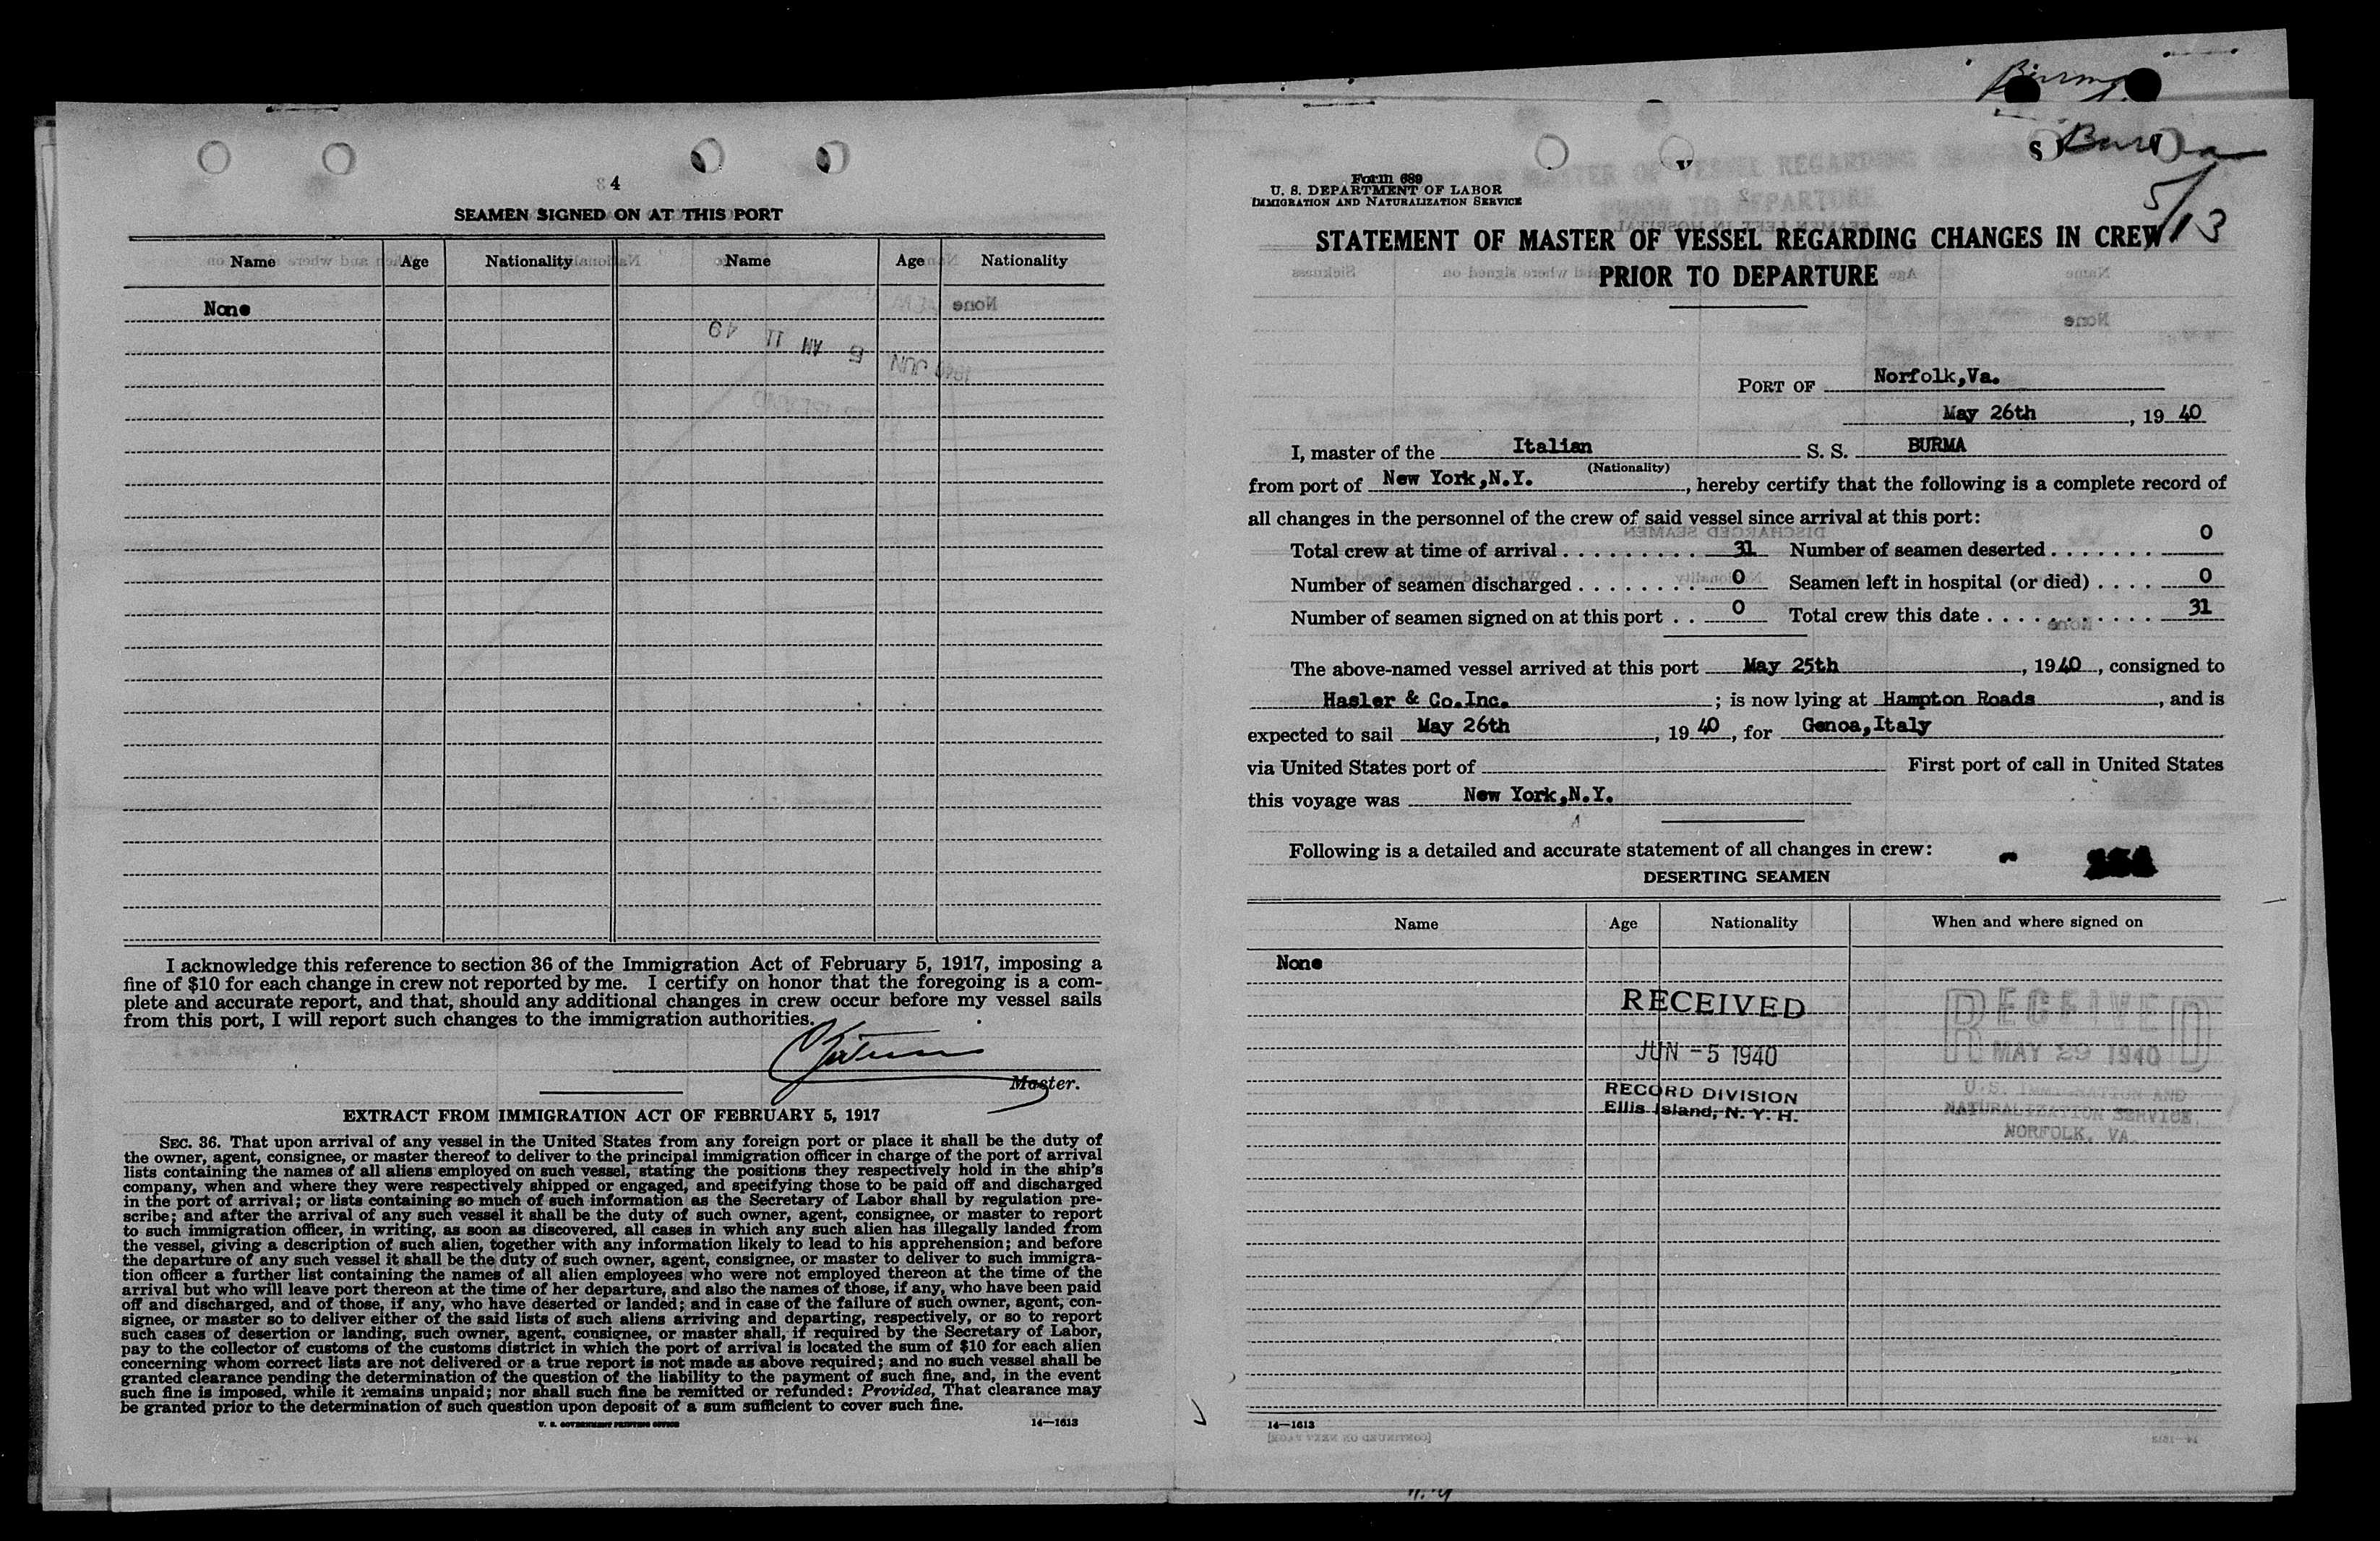 4
SEAMEN SIGNED ON AT THIS PORT
Name Age Nationality Name Age Nationality
None
I acknowledge this reference to section 36 of the Immigration Act of February 5, 1917, imposing a
fine of $10 for each change in crew not reported by me. I certify on honor that the foregoing is a com-
plete and accurate report, and that, should any additional changes in crew occur before my vessel sails
from this port, I will report such changes to the immigration authorities.
Master.
EXTRACT FROM IMMIGRATION ACT OF FEBRUARY 5, 1917
SEC. 36. That upon arrival of any vessel in the United States from any foreign port or place it shall be the duty of
the owner, agent, consignee, or master thereof to deliver to the principal immigration officer in charge of the port of arrival
lists containing the names of all aliens employed on such vessel, stating the positions they respectively hold in the ship's
company, when and where they were respectively shipped or engaged, and specifying those to be paid off and discharged
in the port of arrival; or lists containing so much of such information as the Secretary of Labor shall by regulation pre-
scribe; and after the arrival of any such vessel it shall be the duty of such owner, agent, consignee, or master to report
to such immigration officer, in writing, as soon as discovered, all cases in which any such alien has illegally landed from
the vessel, giving a description of such alien, together with any information likely to lead to his apprehension; and before
the departure of any such vessel it shall be the duty of such owner, agent, consignee, or master to deliver to such immigra-
tion officer a further list containing the names of all alien employees who were not employed thereon at the time of the
arrival but who will leave port thereon at the time of her departure, and also the names of those, if any, who have been paid
off and discharged, and of those, if any, who have deserted or landed; and in case of the failure of such owner, agent, con-
signee, or master so to deliver either of the said lists of such aliens arriving and departing, respectively, or so to report
such cases of desertion or landing, such owner, agent, consignee, or master shall, if required by the Secretary of Labor,
pay to the collector of customs of the customs district in which the port of arrival is located the sum of $10 for each alien
concerning whom correct lists are not delivered or a true report is not made as above required; and no such vessel shall be
granted clearance pending the determination of the question of the liability to the payment of such fine, and, in the event
such fine is imposed, while it remains unpaid; nor shall such fine be remitted or refunded: Provided, That clearance may
be granted prior to the determination of such question upon deposit of a sum sufficient to cover such fine.
U. S. GOVERNMENT PRINTING OFFICE 14—1613
Burma
Burma
5/13
Form 689
U. S. DEPARTMENT OF LABOR
IMMIGRATION AND NATURALIZATION SERVICE
STATEMENT OF MASTER OF VESSEL REGARDING CHANGES IN CREW
PRIOR TO DEPARTURE
PORT OF Norfolk,Va.
May 26th, 19 40
I, master of the Italian S. S. BURMA
(Nationality)
from port of New York,N.Y., hereby certify that the following is a complete record of
all changes in the personnel of the crew of said vessel since arrival at this port:
Total crew at time of arrival . . . . . . . . . 31 Number of seamen deserted . . . . . . . 0
Number of seamen discharged . . . . . . . . 0 Seamen left in hospital (or died) . . . . 0
Number of seamen signed on at this port . . 0 Total crew this date . . . . . . . . . . . 31
The above-named vessel arrived at this port May 25th, 1940, consigned to
Hasler & Co.Inc. ; is now lying at Hampton Roads, and is
expected to sail May 26th, 19 40, for Genoa,Italy
via United States port of First port of call in United States
this voyage was New York,N.Y.
Following is a detailed and accurate statement of all changes in crew:
DESERTING SEAMEN
Name Age Nationality When and where signed on
None
RECEIVED
JUN -5 1940
RECORD DIVISION
Ellis Island, N. Y. H.
RECEIVED
MAY 29 1940
U.S. IMMIGRATION AND
NATURALIZATION SERVICE
NORFOLK, VA.
14—1613